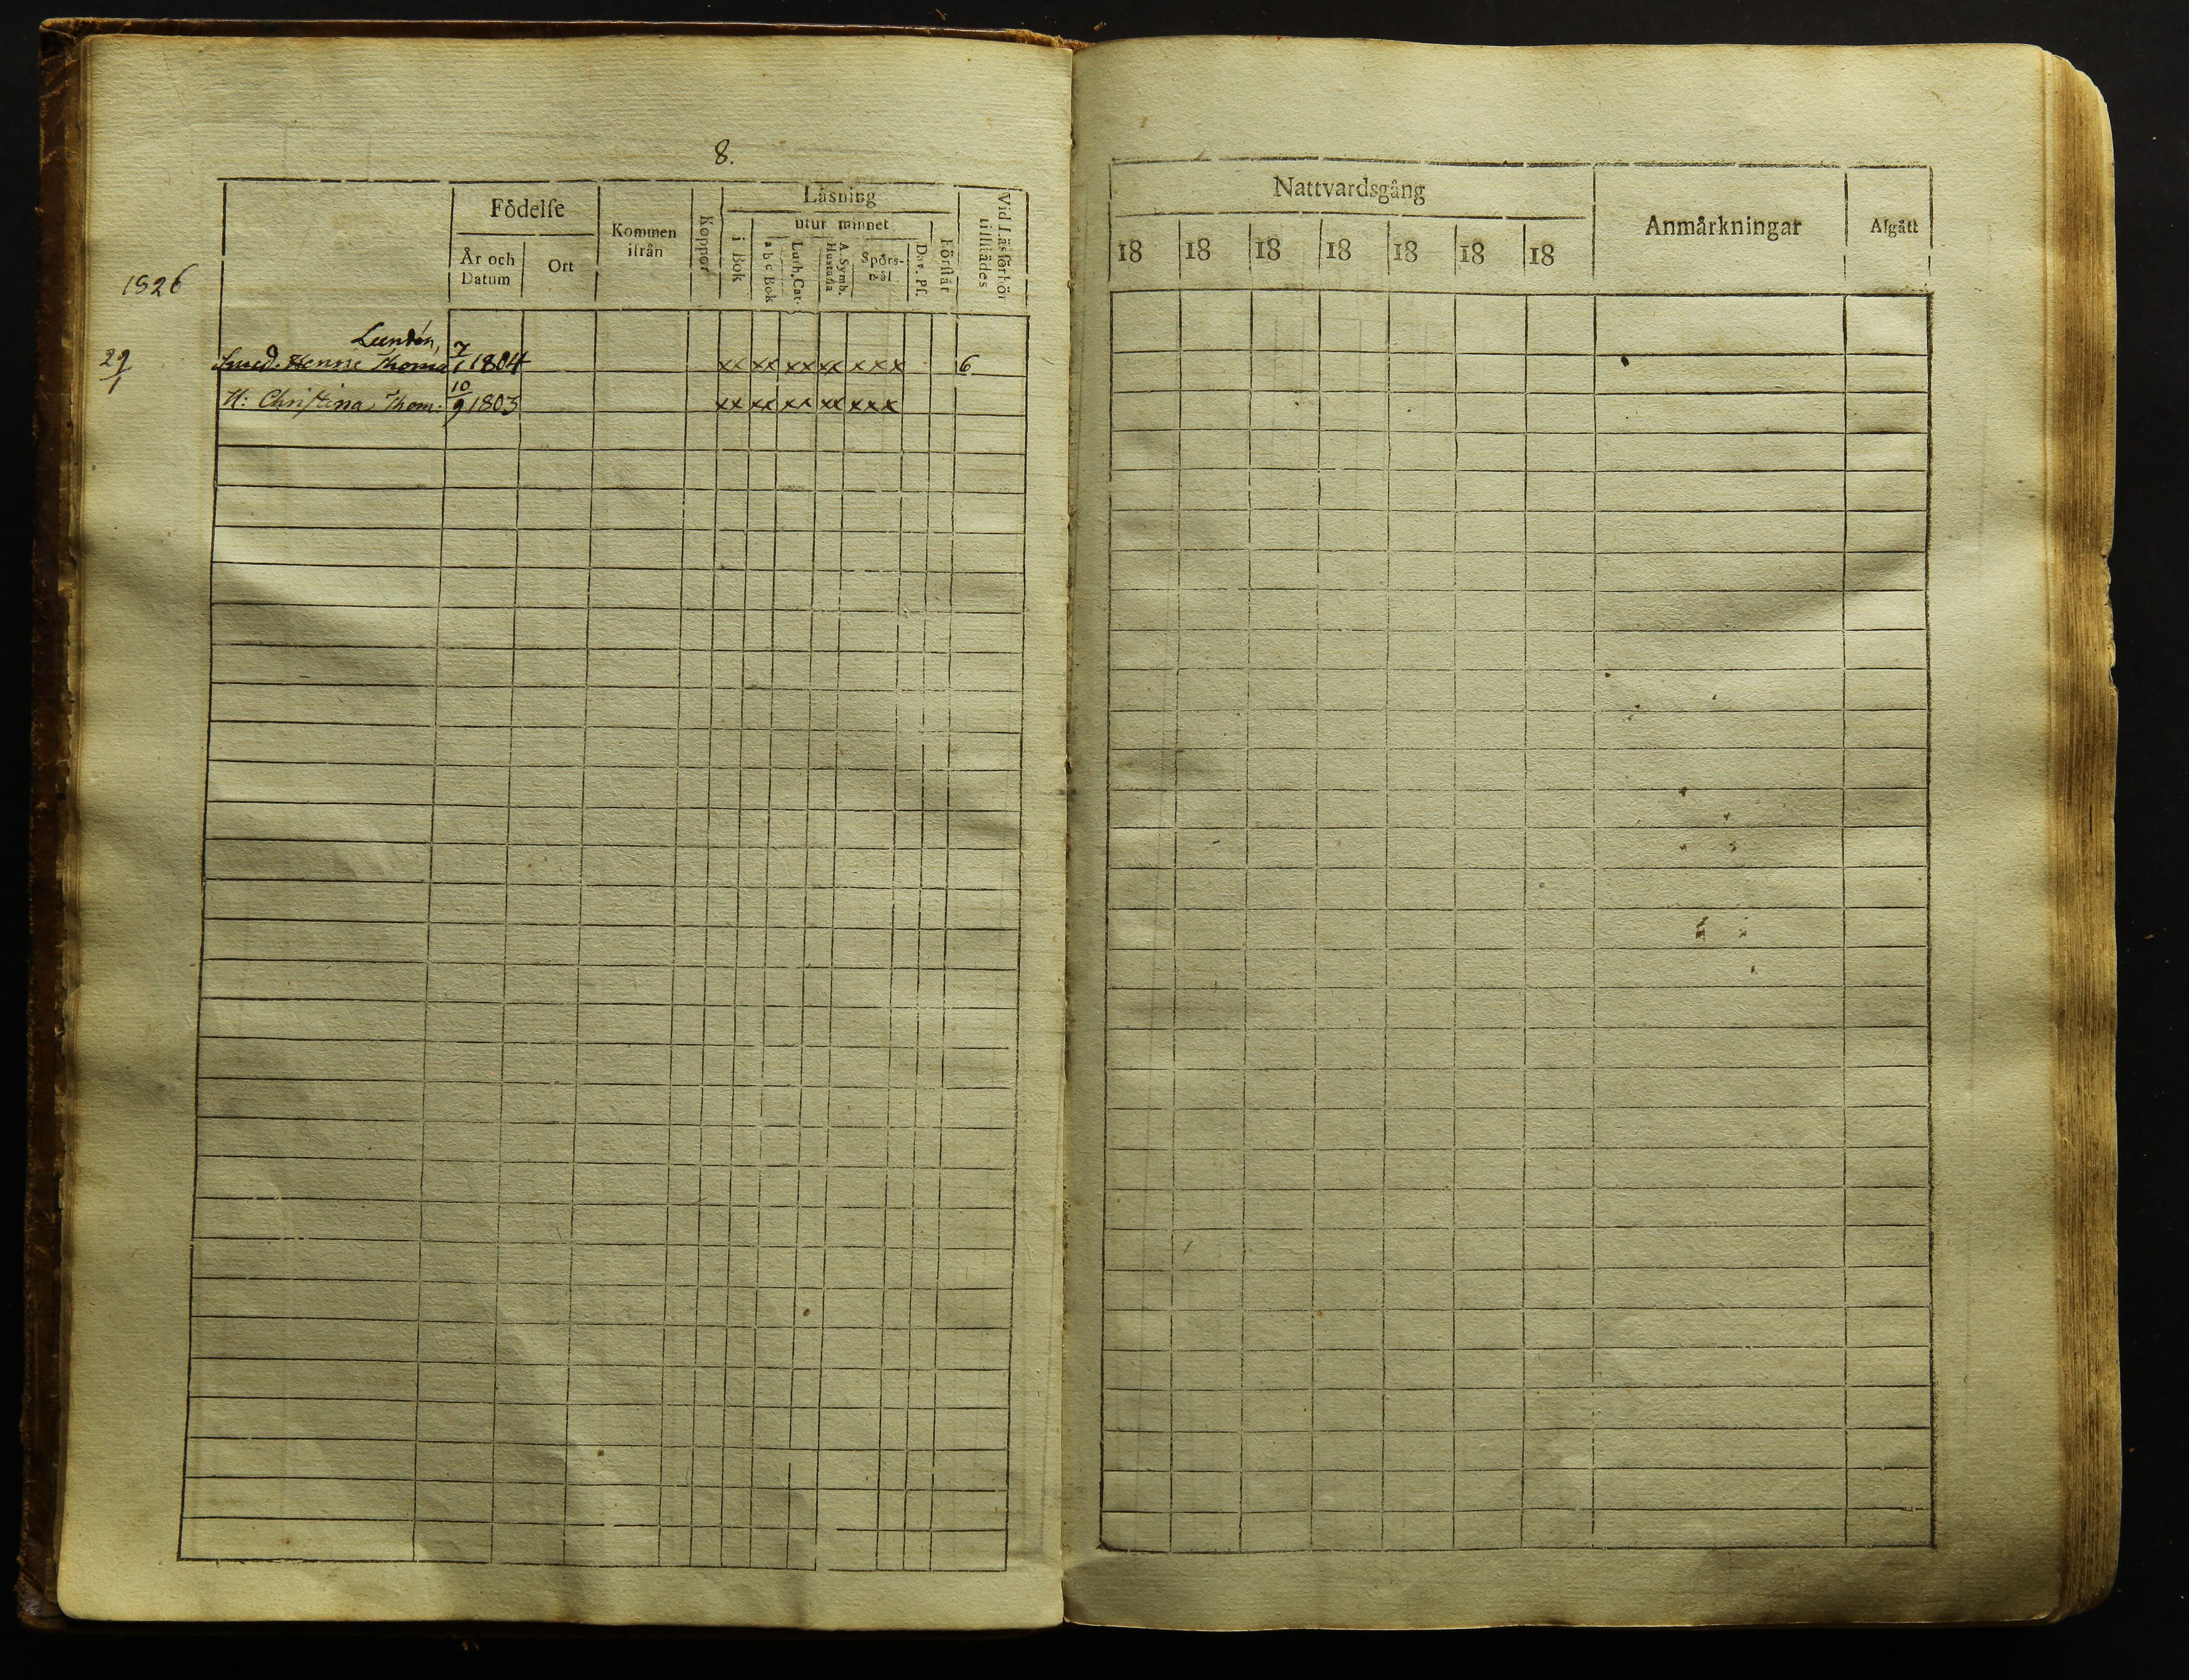 8.
Födelse
År och Datum
Ort
Kommen ifrån
Koppor
Läsning
utur minnet
i Bok
a b c Bok
Luth. Cat.
A. Symb. Hustafla
Spörsmål
Dav. Ps.
Förstår
Vid Läsförhör tillstädes
1826
Lundén,
29/1 Smed. Henric Thoms 7/1 1804 xx xx xx xx xxx 6
H: Christina Thom: 10/9 1803 xx xx xx xx xxx
Nattvardsgång
18 18 18 18 18 18 18
Anmärkningar
Afgått